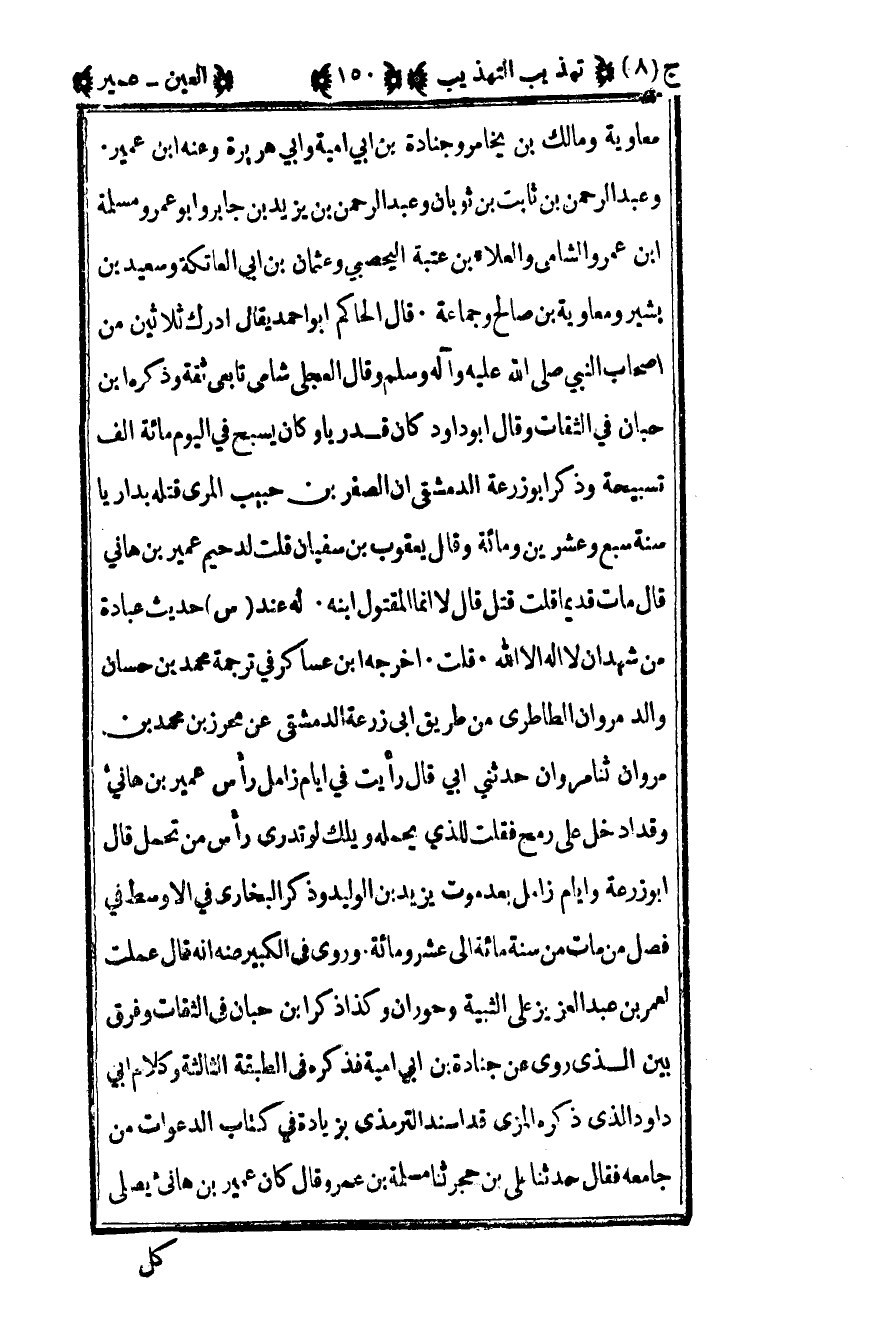 ج (٨) ﴿ تهذيب التهذيب ﴾ ﴿ ١٥٠ ﴾ ﴿ العين - عمير ﴾
معاوية ومالك بن يخامر وجنادة بن ابي امية وابي هريرة وعنه ابن عمير ٠
وعبدالرحمن بن ثابت بن ثوبان وعبدالرحمن بن يزيد بن جابر وابو عمرو مسلمة
ابن عمرو الشامى والعلاء بن عتبة اليحصبي وعثمان بن ابي العاتكة وسعيد بن
بشير ومعاوية بن صالح وجماعة ٠ قال الحاكم ابو احمد يقال ادرك ثلاثين من
اصحاب النبي صلى الله عليه وآله وسلم وقال العجلى شامى تابعى ثقة وذكره ابن
حبان في الثقات وقال ابو داود كان قدريا وكان يسبح في اليوم مائة الف
تسبيحة وذكر ابوزرعة الدمشقى ان الصقر بن حبيب المرى قتله بداريا
سنة سبع وعشرين ومائة وقال يعقوب بن سفيان قلت لدحيم عمير بن هاني
قال مات قديما قلت قتل قال لا انما المقتول ابنه ٠ له عند (س) حديث عبادة
من شهد ان لا اله الا الله ٠ قلت ٠ اخرجه ابن عساكر في ترجمة محمد بن حسان
والد مروان الطاطرى من طريق ابى زرعة الدمشقى عن محرز بن محمد بن
مروان ثنا مروان حدثني ابي قال رأيت في ايام زامل رأس عمير بن هانيء
وقد ادخل على رمح فقلت للذي يحمله ويلك لو تدرى رأس من تحمل قال
ابوزرعة وايام زامل بعد موت يزيد بن الوليد وذكر البخارى في الاوسط في
فصل من مات من سنة مائة الى عشر ومائة ٠ وروى فى الكبير عنه انه قال عملت
لعمر بن عبد العزيز على الثبية وحوران وكذا ذكر ابن حبان فى الثقات وفرق
بين الذى روى عن جنادة بن ابي امية فذكره فى الطبقة الثالثة وكلام ابي
داود الذى ذكره المزى قد اسند الترمذى بزيادة في كتاب الدعوات من
جامعه فقال حدثنا على بن حجر ثنا مسلمة بن عمرو قال كان عمير بن هانىء يصلى
كل